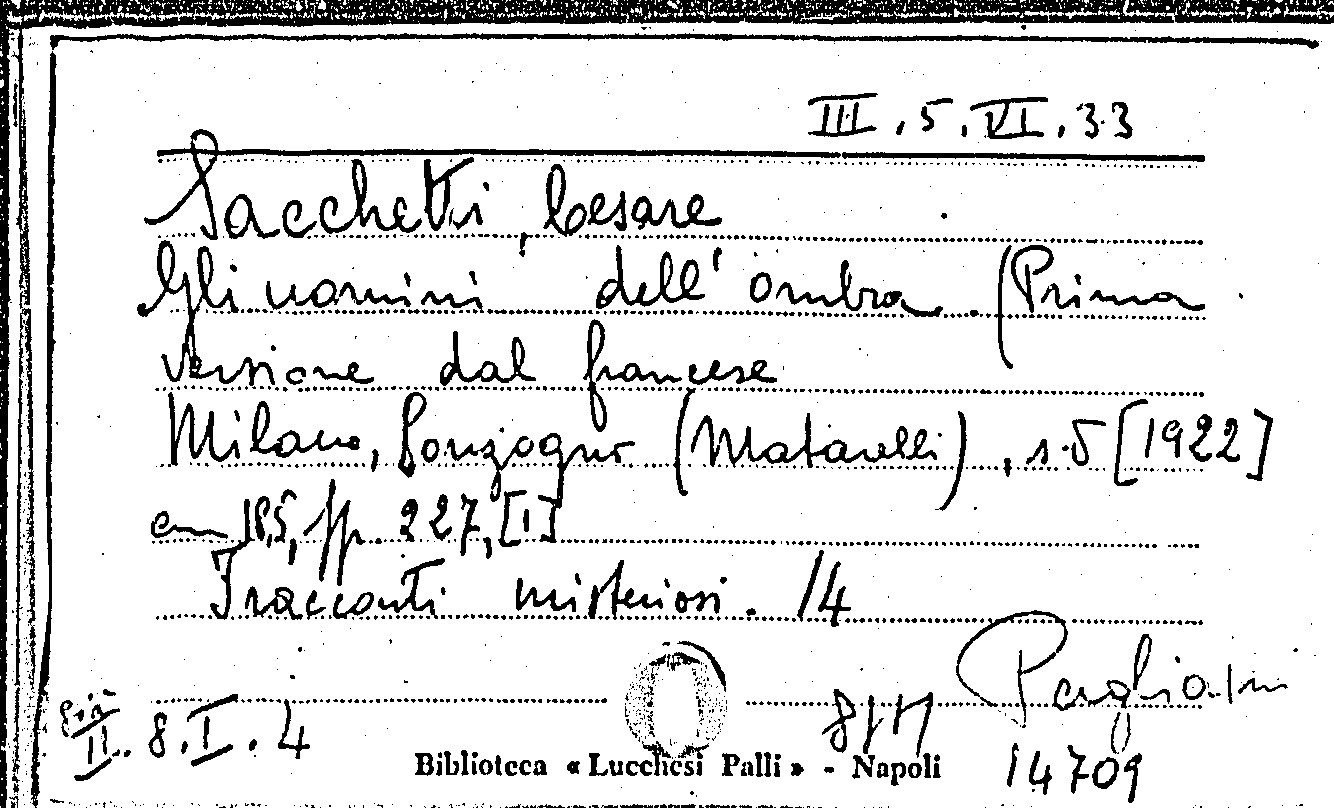 III.5.VI.33
Sacchetti, Cesare
Gli uomini dell'ombra. (Prima
versione dal francese
Milano, Sonzogno (Matarelli), s.d [1922]
cm 18,5, pp. 227, [1]
I racconti misteriosi. 14
già
II.8.I.4
Biblioteca « Lucchesi Palli » - Napoli
14709